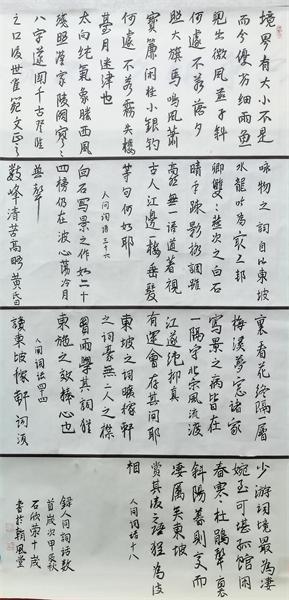 境界有大小不是
而分優劣細雨魚
兒出微風燕子斜
何遽不若落
照大旗馬鳴風蕭
寶簾閒挂小銀鈎
何遽不若霧失樓
臺月迷津渡也
太白純氣象勝西風
殘照漢家陵闕寥寥
八字遂關千古登臨
之口後世唯范文正之
詠物之詞自以東坡
水龍吟為最工邦
卿雙雙燕次之白石
暗香疏影格調雖
高然無一語道著視
古人江邊一樹垂髮
等句何如耶
人間詞話三十八
白石寫景之作如二十
四橋仍在波心蕩冷月
無聲
數峰清苦商略黃昏
裏看花終隔一層
梅溪夢窗諸家
寫景之病皆在
一隔字北宋風流渡
江遂絕抑真
有運會存其間耶
東坡之詞曠稼軒
之詞豪無二人之襟
胸而學其詞猶
東施之效捧心也
人間詞話四四
讀東坡稼軒詞須
少游詞境最為淒
婉至可堪孤館閉
春寒杜鵑聲裏
斜陽暮則變而
淒厲矣東坡
賞其後二語猶為皮
相
人間詞話十八
錄人間詞話數
首歲次甲辰秋
石欣榮十歲
書於翰風堂